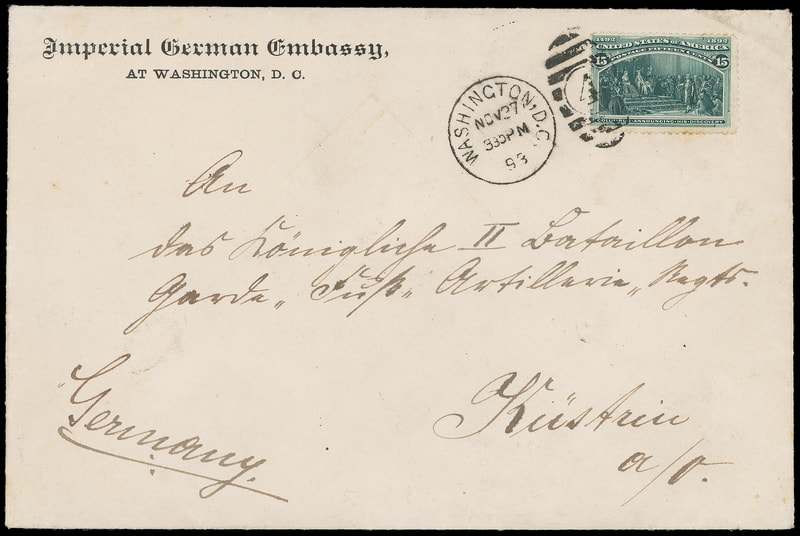 Imperial German Embassy,
AT WASHINGTON, D. C.
WASHINGTON, D.C.
NOV 27
330PM
93
4
1492 1892
UNITED STATES OF AMERICA
15 POSTAGE FIFTEEN CENTS 15
COLUMBUS ANNOUNCING HIS DISCOVERY
An
das Königliche II Bataillon
Garde„ Fuß„ Artillerie„ Regts.
Küstrin
a/O.
Germany.